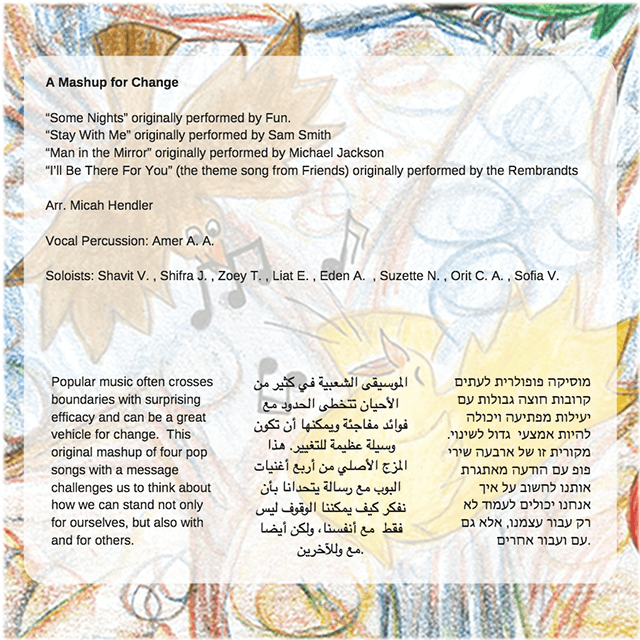 A Mashup for Change
“Some Nights” originally performed by Fun.
“Stay With Me” originally performed by Sam Smith
“Man in the Mirror” originally performed by Michael Jackson
“I’ll Be There For You” (the theme song from Friends) originally performed by the Rembrandts
Arr. Micah Hendler
Vocal Percussion: Amer A. A.
Soloists: Shavit V. , Shifra J. , Zoey T. , Liat E. , Eden A.  , Suzette N. , Orit C. A. , Sofia V.
Popular music often crosses
boundaries with surprising
efficacy and can be a great
vehicle for change.  This
original mashup of four pop
songs with a message
challenges us to think about
how we can stand not only
for ourselves, but also with
and for others.
الموسيقى الشعبية في كثير من
الأحيان تتخطى الحدود مع
فوائد مفاجئة ويمكنها أن تكون
وسيلة عظيمة للتغيير. هذا
المزج الأصلي من أربع أغنيات
البوب مع رسالة يتحدانا بأن
نفكر كيف يمكننا الوقوف ليس
فقط  مع أنفسنا، ولكن أيضا
مع وللآخرين.
מוסיקה פופולרית לעתים
קרובות חוצה גבולות עם
יעילות מפתיעה ויכולה
להיות אמצעי  גדול לשינוי.
מקורית זו של ארבעה שירי
פופ עם הודעה מאתגרת
אותנו לחשוב על איך
אנחנו יכולים לעמוד לא
רק עבור עצמנו, אלא גם
עם ועבור אחרים.